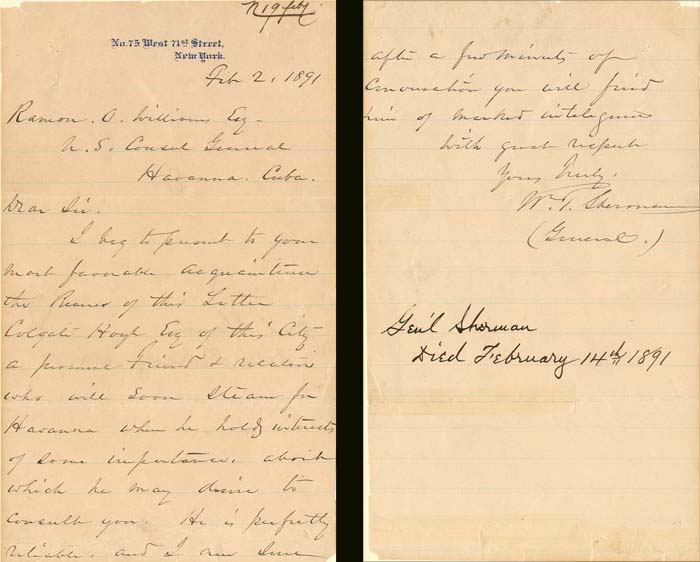 R 19 Feby
No. 75 West 71st Street,
New York.
Feb 2, 1891
Ramon. O. Williams Esq-
U. S. Consul General
Havanna. Cuba.
Dear Sir.
I beg to present to your
most favorable acquaintance
the Bearer of this Letter
Colgate Hoyt Esq of this City
a personal friend & relative
who will soon steam for
Havanna where he holds interests
of some importance, about
which he may desire to
consult you. He is perfectly
reliable, and I am sure
after a few minutes of
conversation you will find
him of marked inteligence
With great respect
Yours Truly,
W. T. Sherman
(General.)
Gen'l Sherman
Died February 14th 1891